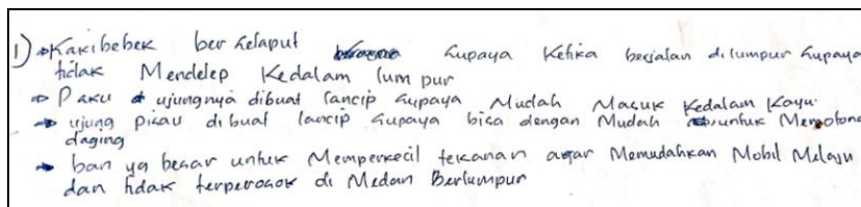 1) → Kaki bebek berselaput supaya Ketika berjalan dilumpur supaya
tidak Mendelep Kedalam lumpur
→ Paku ujungnya dibuat lancip supaya Mudah Masuk Kedalam Kayu.
→ ujung pisau dibuat lancip supaya bisa dengan Mudah untuk Memotong
daging
→ ban yg besar untuk Memperkecil tekanan agar Memudahkan Mobil Melaju
dan tidak terperosok di Medan Berlumpur